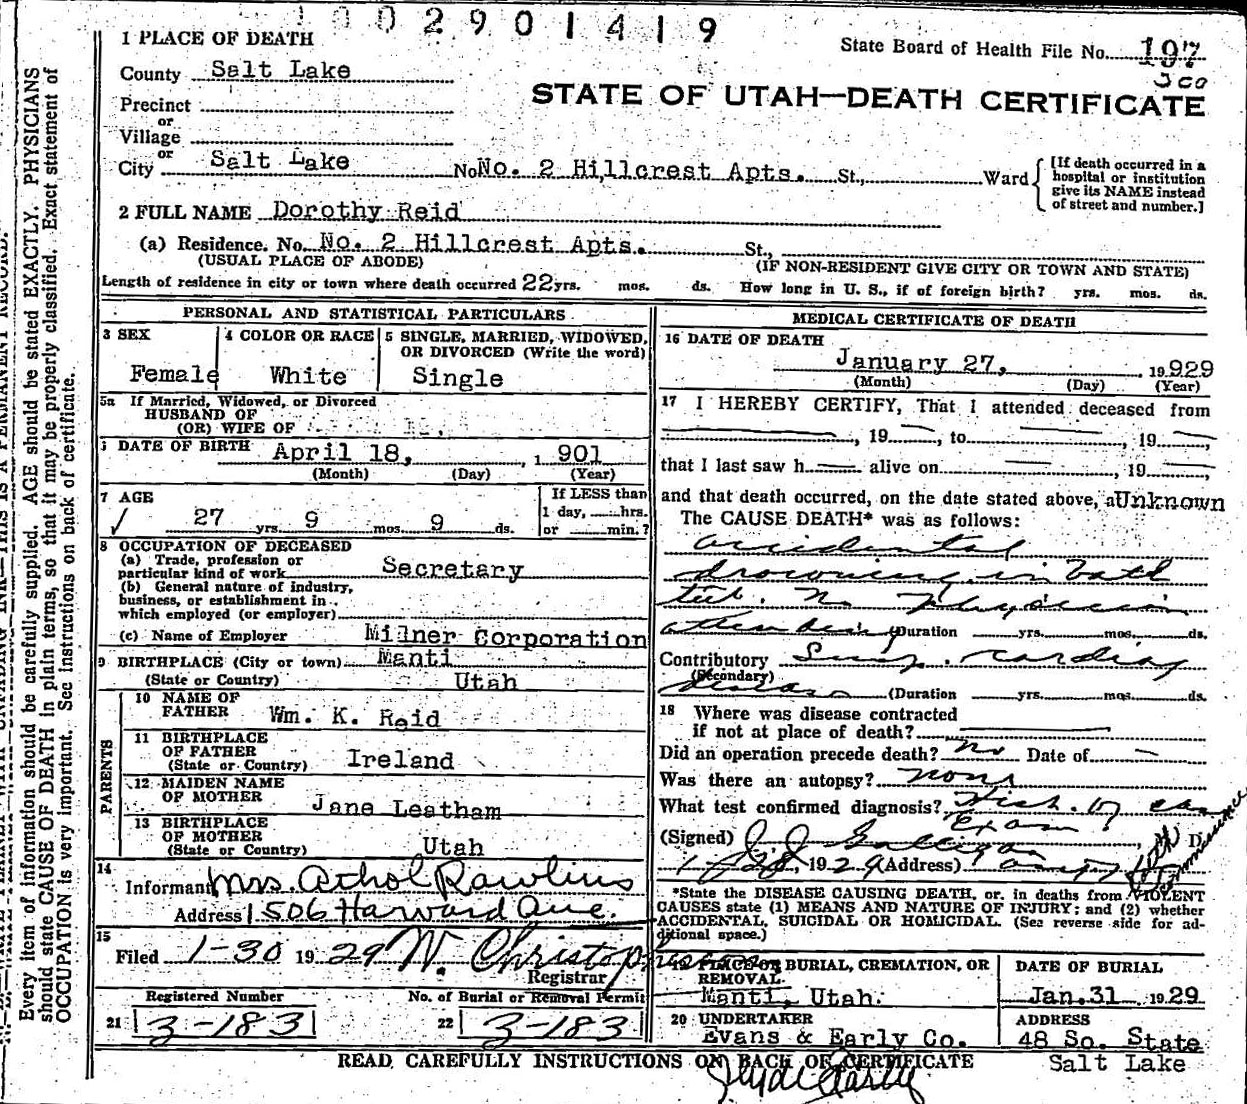 1002901419
1 PLACE OF DEATH
State Board of Health File No. 197
County Salt Lake
STATE OF UTAH—DEATH CERTIFICATE
Precinct
or
Village
or
City Salt Lake No No. 2 Hillcrest Apts. St., Ward
[If death occurred in a
hospital or institution
give its NAME instead
of street and number.]
2 FULL NAME Dorothy Reid
(a) Residence. No. No. 2 Hillcrest Apts. St.,
(USUAL PLACE OF ABODE) (IF NON-RESIDENT GIVE CITY OR TOWN AND STATE)
Length of residence in city or town where death occurred 22 yrs. mos. ds. How long in U. S., if of foreign birth? yrs. mos. ds.
PERSONAL AND STATISTICAL PARTICULARS
3 SEX
Female
4 COLOR OR RACE
White
5 SINGLE, MARRIED, WIDOWED,
OR DIVORCED (Write the word)
Single
5a If Married, Widowed, or Divorced
HUSBAND OF
(OR) WIFE OF
DATE OF BIRTH April 18, , 1 901
(Month) (Day) (Year)
7 AGE
27 yrs. 9 mos. 9 ds.
If LESS than
1 day, hrs.
or min.?
8 OCCUPATION OF DECEASED
(a) Trade, profession or
particular kind of work Secretary
(b) General nature of industry,
business, or establishment in
which employed (or employer)
(c) Name of Employer Milner Corporation
9 BIRTHPLACE (City or town) Manti
(State or Country) Utah
PARENTS
10 NAME OF
FATHER Wm. K. Reid
11 BIRTHPLACE
OF FATHER
(State or Country) Ireland
12 MAIDEN NAME
OF MOTHER Jane Leatham
13 BIRTHPLACE
OF MOTHER
(State or Country) Utah
14
Informant Mrs. Athol Rawlins
Address 1506 Harvard Ave.
15
Filed 1-30 1929 W. Christopherson
Registrar
Registered Number No. of Burial or Removal Permit
21 3-183 22 3-183
MEDICAL CERTIFICATE OF DEATH
16 DATE OF DEATH
January 27, 1929
(Month) (Day) (Year)
17 I HEREBY CERTIFY, That I attended deceased from
, 19 , to , 19 ,
that I last saw h alive on , 19
and that death occurred, on the date stated above, at Unknown
The CAUSE DEATH* was as follows:
accidental
drowning in bath
tub. No physician
attending (Duration yrs. mos. ds.
Contributory Susp. cardiac
(Secondary)
disease (Duration yrs. mos. ds.
18 Where was disease contracted
if not at place of death?
Did an operation precede death? No Date of
Was there an autopsy? none
What test confirmed diagnosis? Hist. by
Exam.
(Signed) , D.
1/28, 1929 (Address) County
*State the DISEASE CAUSING DEATH, or, in deaths from VIOLENT
CAUSES state (1) MEANS AND NATURE OF INJURY; and (2) whether
ACCIDENTAL, SUICIDAL OR HOMICIDAL. (See reverse side for ad-
ditional space.)
19 PLACE OF BURIAL, CREMATION, OR
REMOVAL
Manti, Utah.
DATE OF BURIAL
Jan.31 1929
20 UNDERTAKER
Evans & Early Co.
ADDRESS
48 So. State
Salt Lake
READ CAREFULLY INSTRUCTIONS ON BACK OF CERTIFICATE
Every item of information should be carefully supplied. AGE should be stated EXACTLY. PHYSICIANS
should state CAUSE OF DEATH in plain terms, so that it may be properly classified. Exact statement of
OCCUPATION is very important. See instructions on back of certificate.